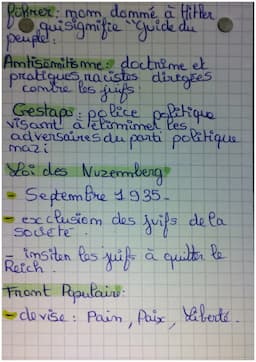 Führer: mom dommé à Hitler
qui signifie "guide du
peuple.
Amtisémitisme: doctrime et
pratiques racistes dirigées
comtre les juifs.
Gestapo: police politique
visamt à élimimer les
adversaires du parti politique
mazi
Loi des Nuremberg
- Septembre 1935.
- exclusiom des juifs de la
société.
- imsiter les juifs à quitter le
Reich.
Fromt Populaire:
- devise: Pain, Paix, Liberté.